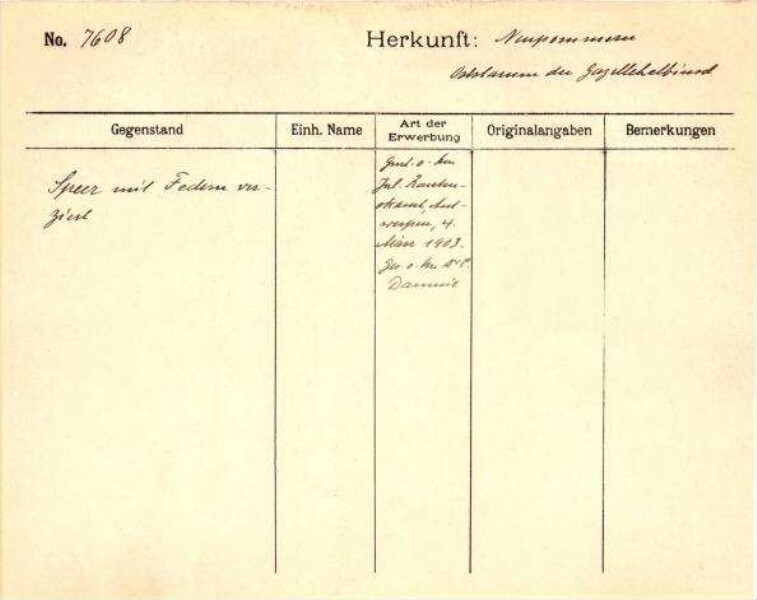 No. 7608
Herkunft: Neupommern
der Gazellehalbinsel
Gegenstand
Einh. Name
Art der
Erwerbung
Originalangaben
Bemerkungen
Speer mit Federn ver-
ziert
Jul.
Ant-
werpen, 4.
März 1903.